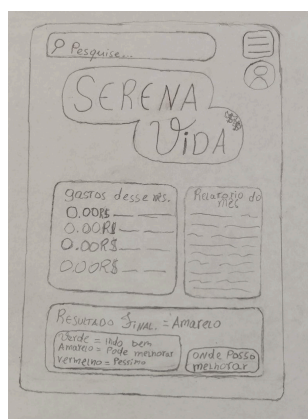 Pesquise...
SERENA
ViDA
gastos desse mês.
0.00R$
0.00R$
0.00R$
0.00R$
Relatorio do
mês
RESULTADO FINAL = Amarelo
Verde = indo bem
Amarelo = Pode melhorar
vermelho = Pessimo
onde Posso
melhorar